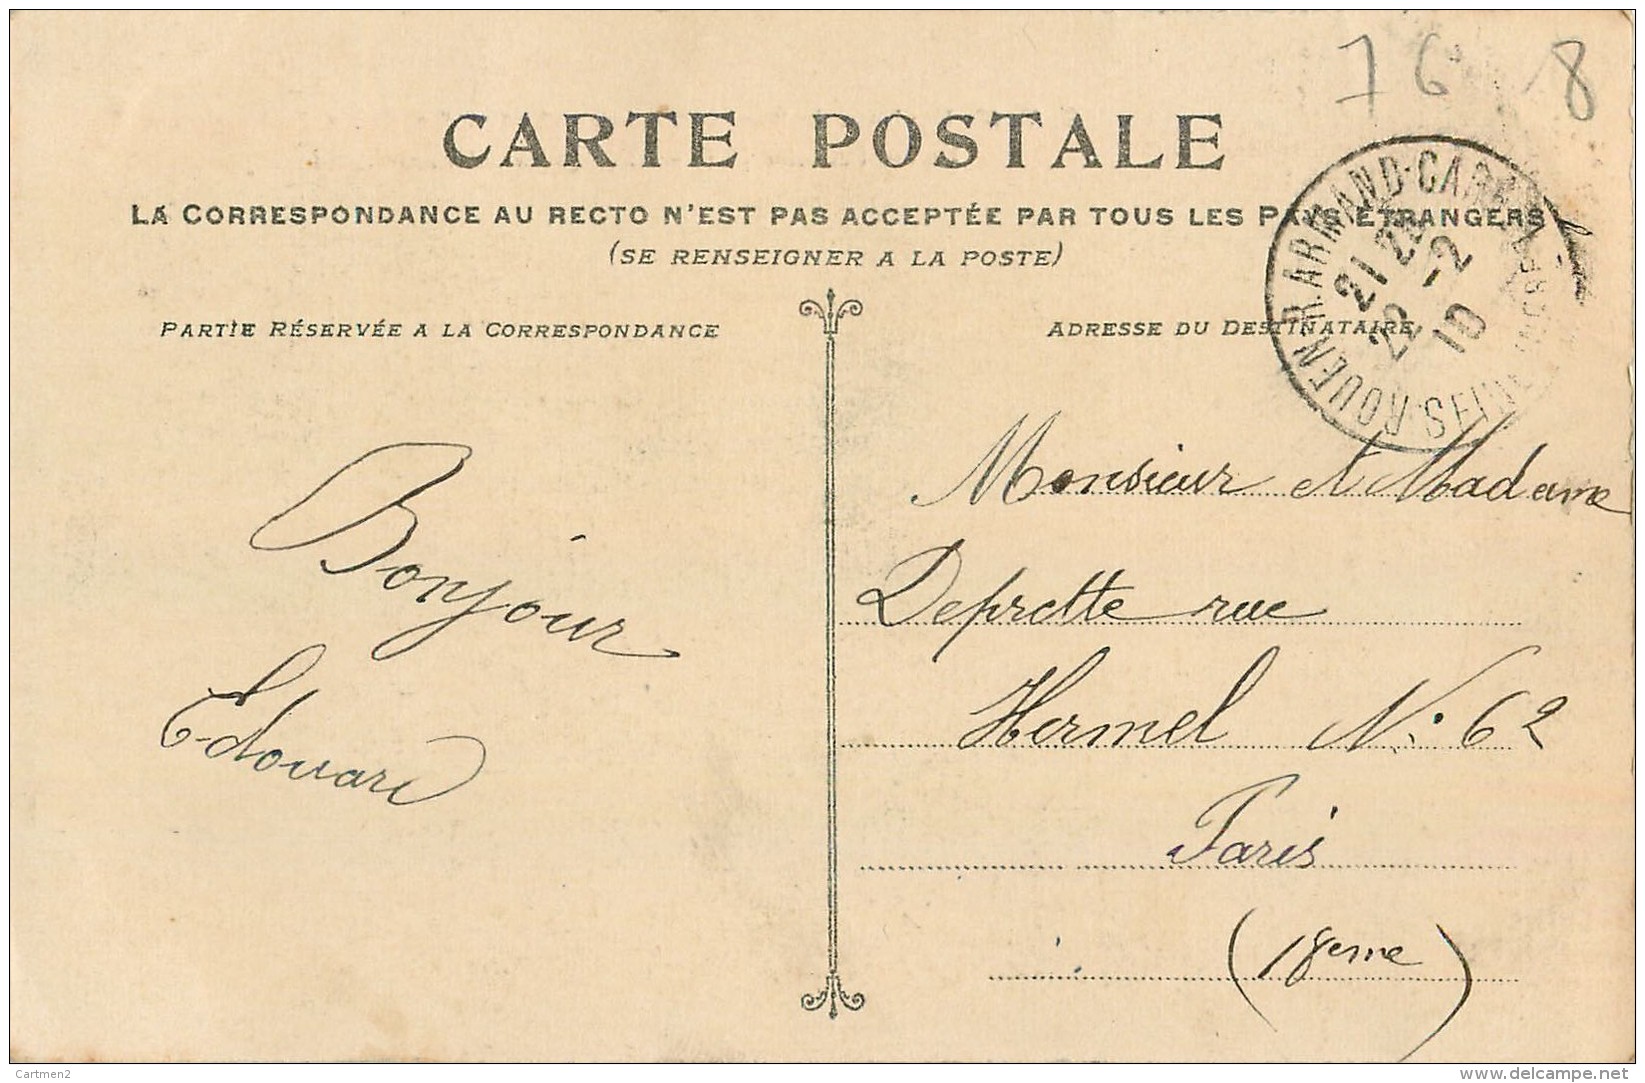 76 8
CARTE POSTALE
LA CORRESPONDANCE AU RECTO N'EST PAS ACCEPTÉE PAR TOUS LES PAYS ETRANGERS
(SE RENSEIGNER A LA POSTE)
PARTIE RÉSERVÉE A LA CORRESPONDANCE
ADRESSE DU DESTINATAIRE
ROUEN R. ARMAND-CARREL
21 22
22 -2
10
SEINE INFRE
Bonjour
Edouard
Monsieur et Madame
Deprette rue
Hermel N: 62
Paris
(18eme)
Cartmen2
www.delcampe.net